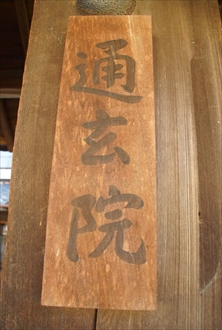 通玄院